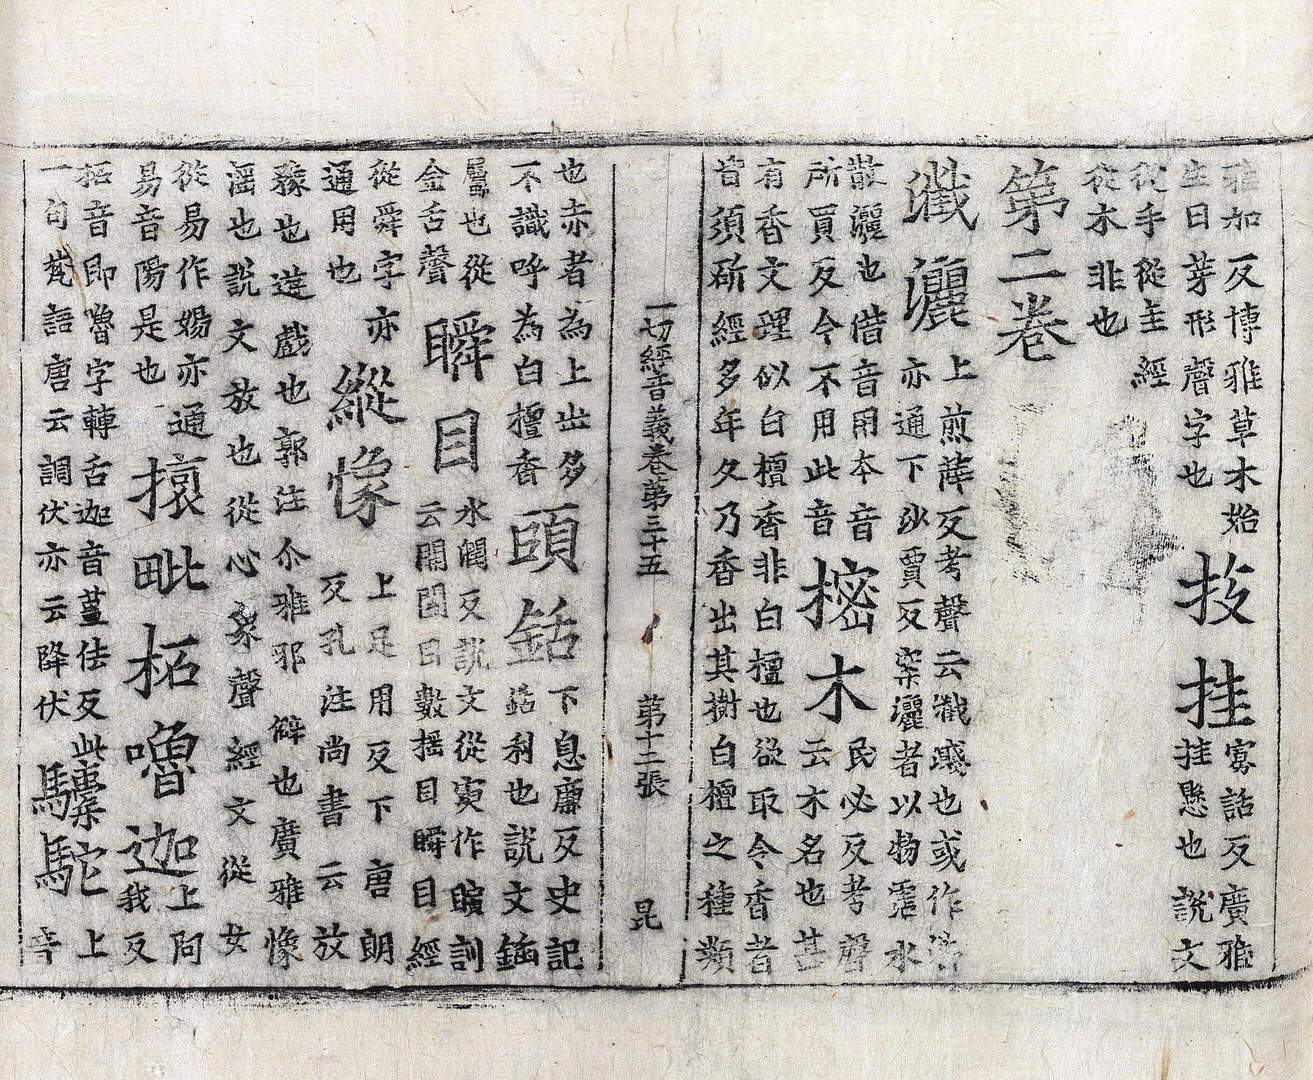 雅加反博雅草木始
生曰芽形聲字也
技挂
寡話反廣雅
挂懸也說文
從手從圭經
從木非也
第二卷
濺灑
上煎薛反考聲云濺也或作
亦通下沙賈反案灑者以物霑水
散灑也借音用本音
所買反今不用此音
榓木
民必反考聲
云木名也甚
有香文理似白檀香非白檀也欲取令香者
皆須斫經多年久乃香出其樹白檀之種類
一切經音義卷第三十五 第十二張 昆
也赤者為上出多
不識呼為白檀香
頭銛
下息廉反史記
銛利也說文鍤
屬也從
金舌聲
瞬目
水閏反說文從寅作瞚訓
云開闔目數搖目瞬目經
從舜字亦
通用也
縱㦽
上足用反下唐朗
反孔注尚書云放
豫也遊戲也郭注尒雅邪僻也廣雅㦽
滛也說文放也從心象聲經文從女
從易作婸亦通
易音陽是也
㨱毗柘嚕迦
上阿
我反
柘音即嚕字轉舌迦音薑佉反此
一句梵語唐云調伏亦云降伏
驝駝
上
音